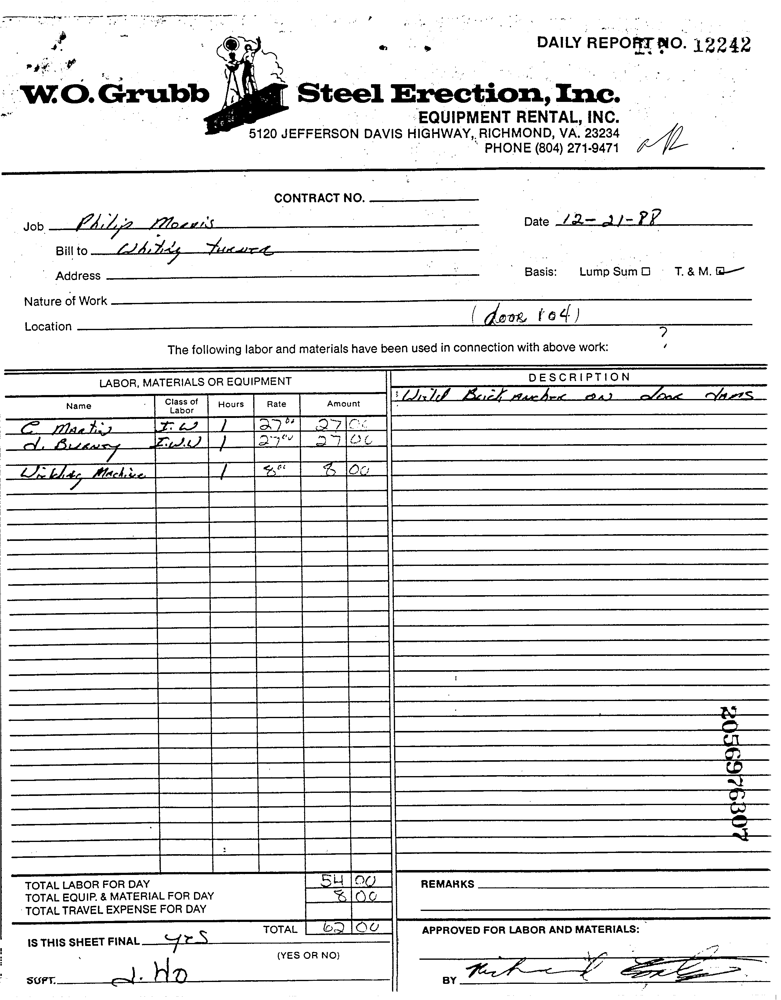 DAILY REPORT NO. 12242
W.O. Grubb Steel Erection, Inc.
EQUIPMENT RENTAL, INC.
5120 JEFFERSON DAVIS HIGHWAY, RICHMOND, VA. 23234
PHONE (804) 271-9471
CONTRACT NO.
Job Philip Morris Date 12-21-88
Bill to Whiting Turner
Address Basis: Lump Sum ☐ T. & M. ☑
Nature of Work
Location (door 104)
The following labor and materials have been used in connection with above work: ?
LABOR, MATERIALS OR EQUIPMENT DESCRIPTION
Name Class of Labor Hours Rate Amount
Weld Brick Anchor on door Jams
C Martin I.W 1 27 00 27 00
J. Burney I.W.W 1 27 00 27 00
Welding Machine 1 8 00 8 00
2056976307
TOTAL LABOR FOR DAY 54 00
TOTAL EQUIP. & MATERIAL FOR DAY 8 00
TOTAL TRAVEL EXPENSE FOR DAY
REMARKS
TOTAL 62 00
IS THIS SHEET FINAL yes
(YES OR NO)
APPROVED FOR LABOR AND MATERIALS:
SUPT. J. Ho
BY